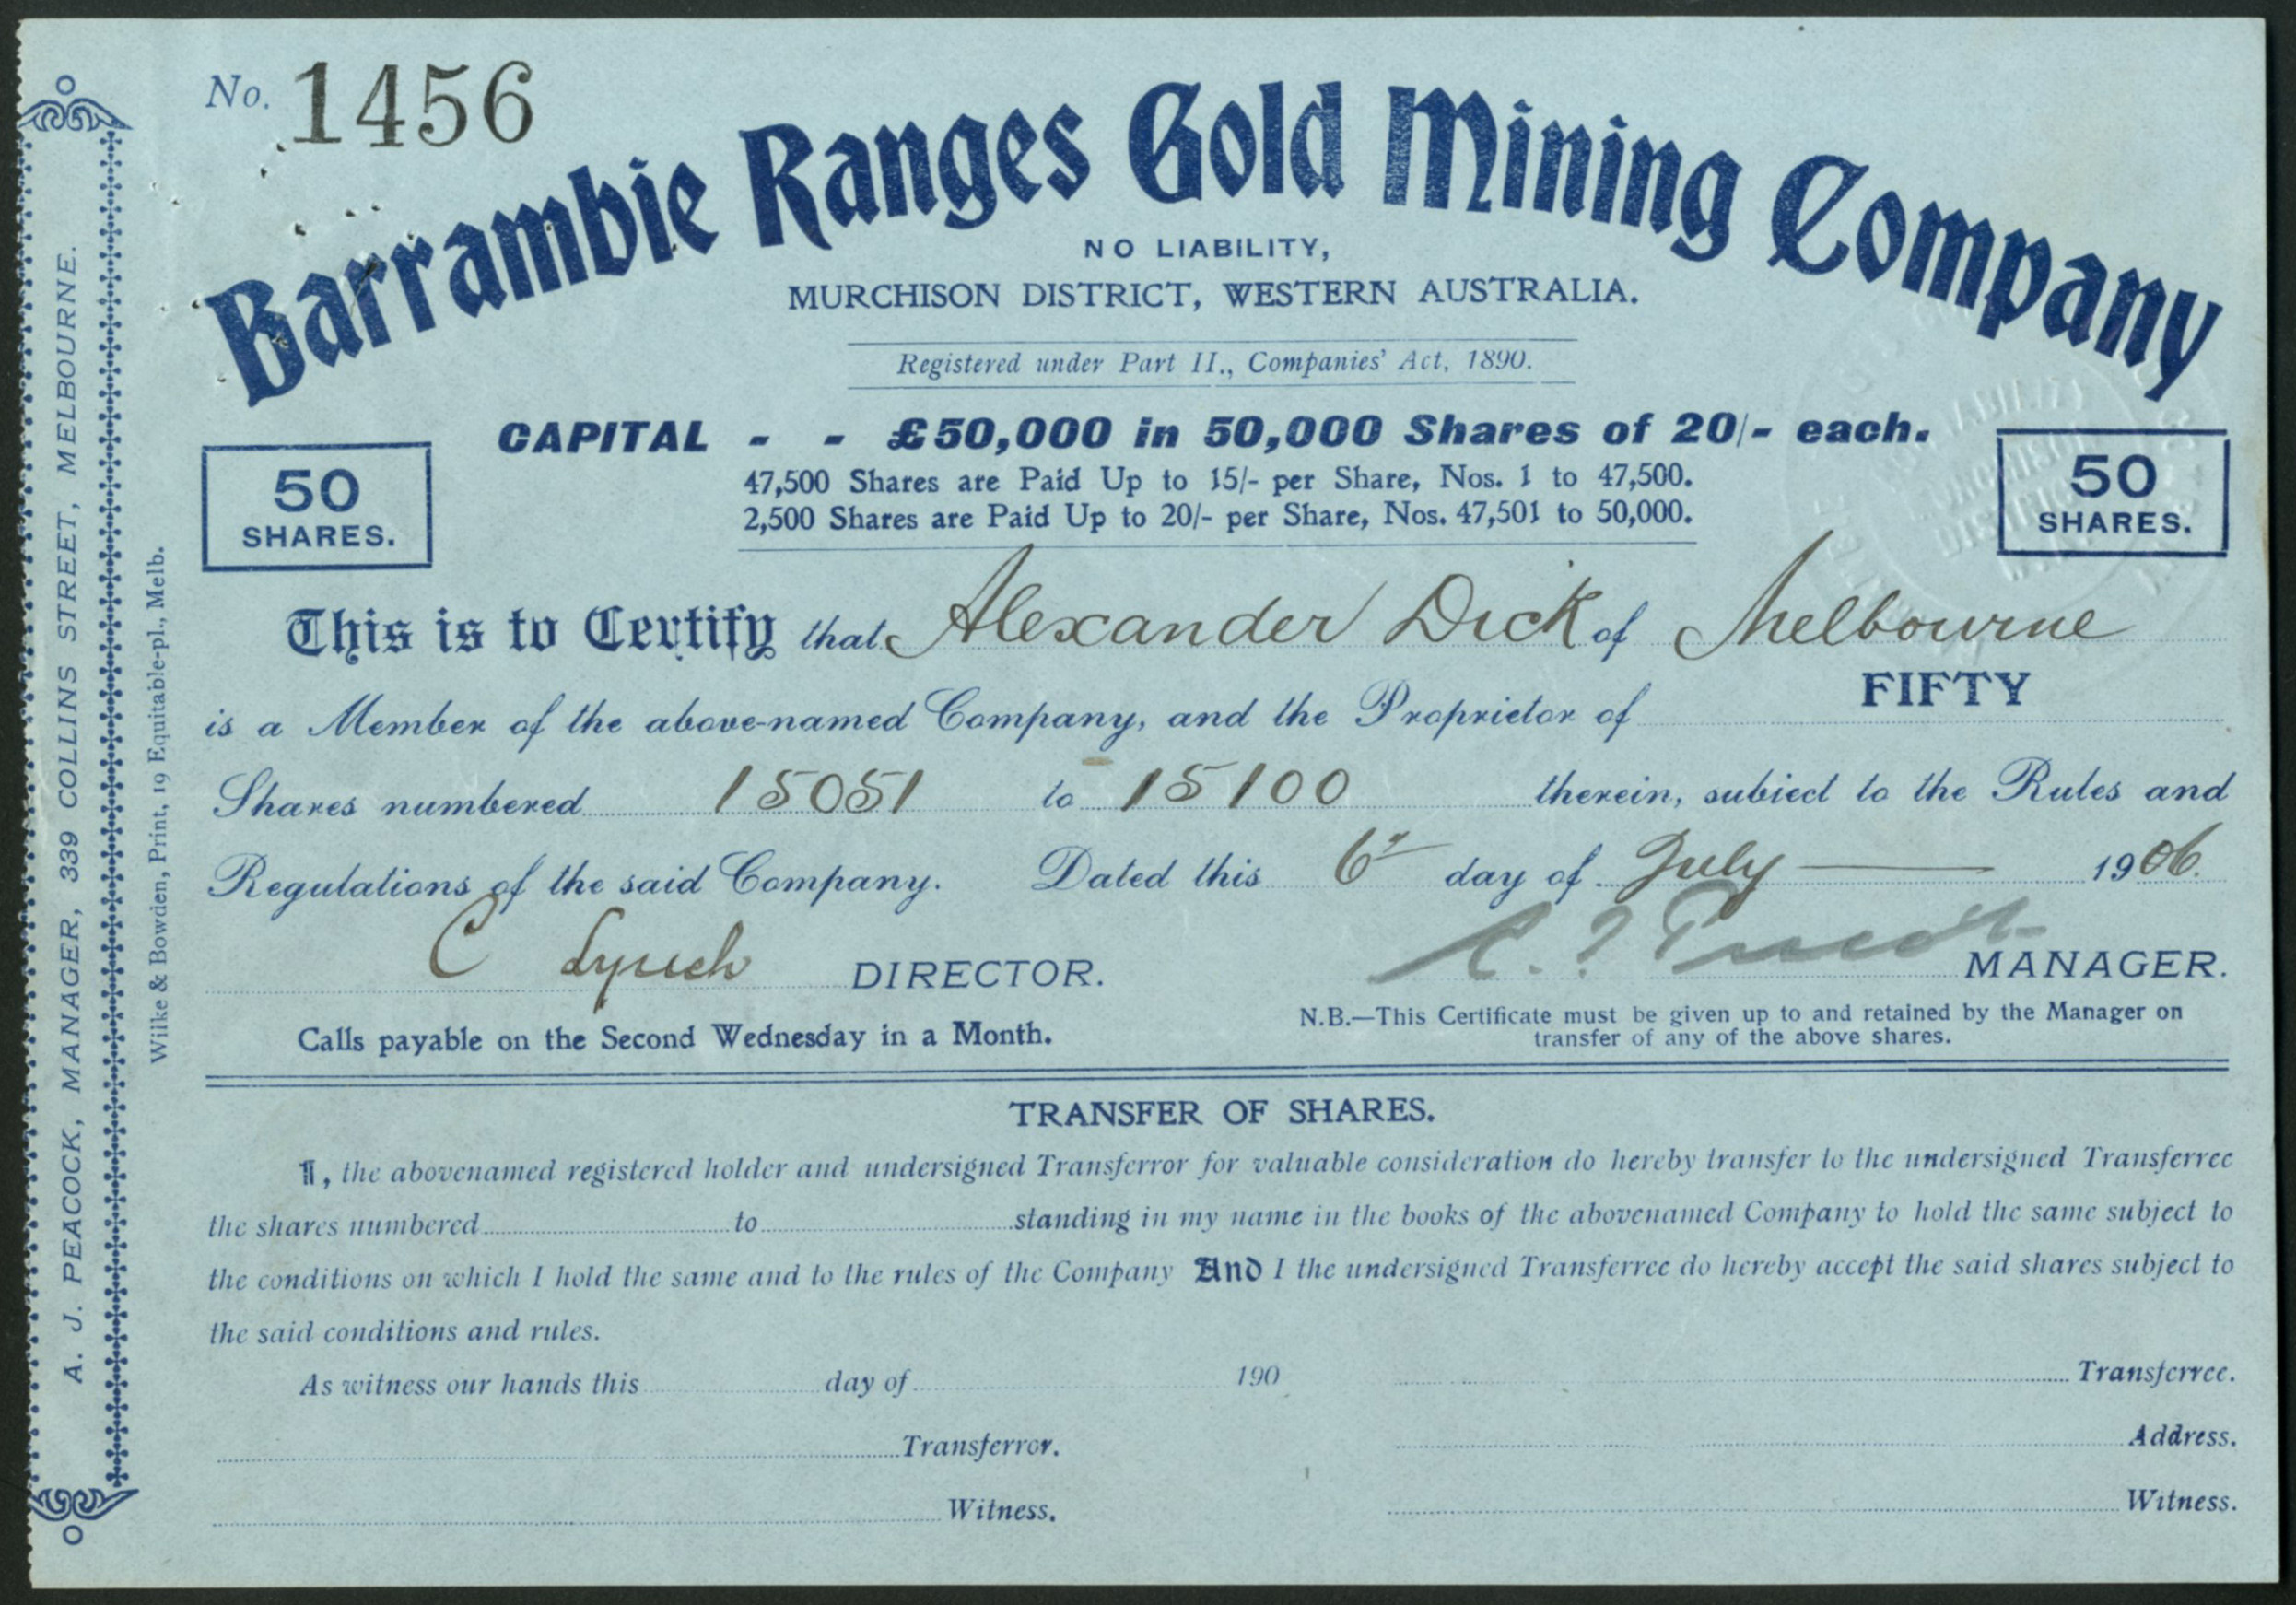 No. 1456
Barrambie Ranges Gold Mining Company
NO LIABILITY,
MURCHISON DISTRICT, WESTERN AUSTRALIA.
Registered under Part II., Companies' Act, 1890.
CAPITAL - - £50,000 in 50,000 Shares of 20/- each.
47,500 Shares are Paid Up to 15/- per Share, Nos. 1 to 47,500.
2,500 Shares are Paid Up to 20/- per Share, Nos. 47,501 to 50,000.
50
SHARES.
50
SHARES.
This is to Certify that Alexander Dick of Melbourne
is a Member of the above-named Company, and the Proprietor of FIFTY
Shares numbered 15051 to 15100 therein, subject to the Rules and
Regulations of the said Company. Dated this 6th day of July 1906.
C Lynch DIRECTOR.
MANAGER.
Calls payable on the Second Wednesday in a Month.
N.B.—This Certificate must be given up to and retained by the Manager on
transfer of any of the above shares.
TRANSFER OF SHARES.
I, the abovenamed registered holder and undersigned Transferror for valuable consideration do hereby transfer to the undersigned Transferree
the shares numbered to standing in my name in the books of the abovenamed Company to hold the same subject to
the conditions on which I hold the same and to the rules of the Company And I the undersigned Transferree do hereby accept the said shares subject to
the said conditions and rules.
As witness our hands this day of 190
Transferree.
Transferror.
Address.
Witness.
Witness.
A. J. PEACOCK, MANAGER, 339 COLLINS STREET, MELBOURNE.
Wilke & Bowden, Print, 19 Equitable-pl., Melb.